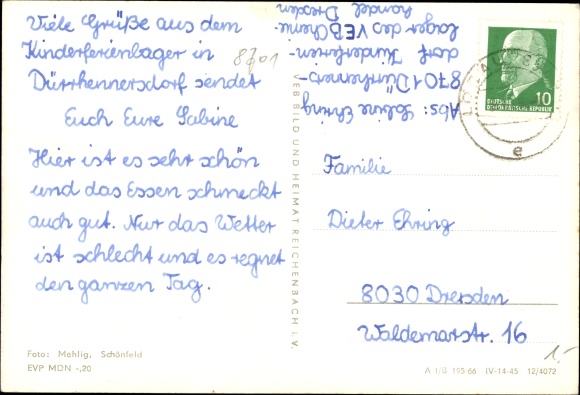 Viele Grüße aus dem
Kinderferienlager in
Dürrhennersdorf sendet
Euch Eure Sabine
Hier ist es sehr schön
und das Essen schmeckt
auch gut. Nur das Wetter
ist schlecht und es regnet
den ganzen Tag.
8701
Foto: Mehlig, Schönfeld
EVP MDN -,20
VEB BILD UND HEIMAT REICHENBACH I. V.
Abs: Sabine Ehring
8701 Dürrhenners-
dorf Kinderferien-
lager des VEB Chemie-
handel Dresden
DEUTSCHE
DEMOKRATISCHE REPUBLIK
10
e
Familie
Dieter Ehring
8030 Dresden
Waldemarstr. 16
1,-
A 1/B 195 66 IV-14-45 12/4072